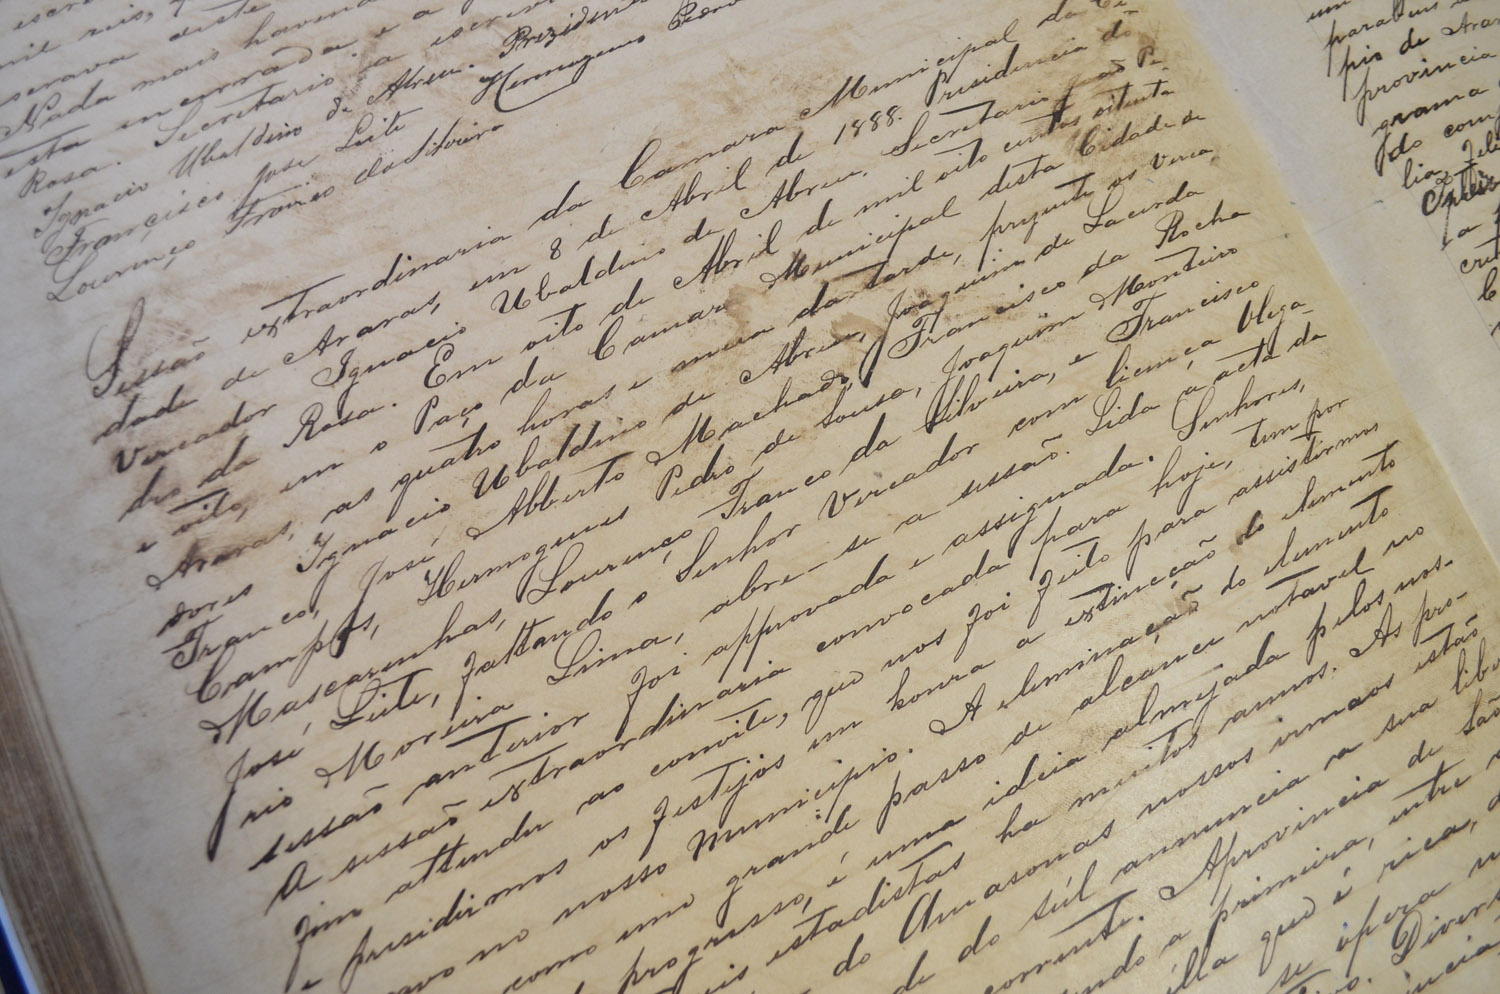 mil reis,
serava deste
Nada mais havendo
esta encerrada e a
Rosa. Secretario a escrevi
Ignacio Ubaldino de Abreu. Prezidente
Francisco José Leite Hermogenes Pedro
Lourenço Franco da Silveira
Sessaõ extraordinaria da Camara Municipal da Ci-
dade de Araras, em 8 de Abril de 1888. Presidencia do
Vereador Ignacio Ubaldino de Abreu. Secretario Joaõ Pe-
dro da Rosa. Em oito de Abril de mil oito centos oitenta
e oito, em o Paço da Camara Municipal desta Cidade de
Araras, as quatro horas e meia da tarde, prezente os Verea
dores Ignacio Ubaldino de Abreu, Joaquim de Lacerda
Franco, José, Alberto Machado, Francisco da Rocha
Campos, Hermogenes Pedro de Sousa, Joaquim Monteiro
Mascarenhas, Lourenço Franco da Silveira, e Francisco
José Leite, faltando o Senhor Vereador com licença Olega-
rio Moreira Lima, abre-se a sessaõ. Lida a acta da
sessaõ anterior foi approvada e assignada. Senhores,
A sessaõ extraordinaria convocada para hoje, tem por
fim attender ao convite, que nos foi feito para assistirmos
e presidirmos os festejos em honra a extincçaõ do elemento
escravo no nosso Municipio. A eleminaçaõ do elemento
como um grande passo de alcance notavel no
progresso, é uma ideia almejada pelos nos-
estadistas ha muitos annos. As pro-
do Amasonas nossos irmaos estaõ
de do sul annuncia a sua liber
corrente. Aprovincia de Saõ
a primeira, entre
ella que é rica,
se opera
Diver
um
parabens
pio de Araras
provincia
gramma
do com
lia